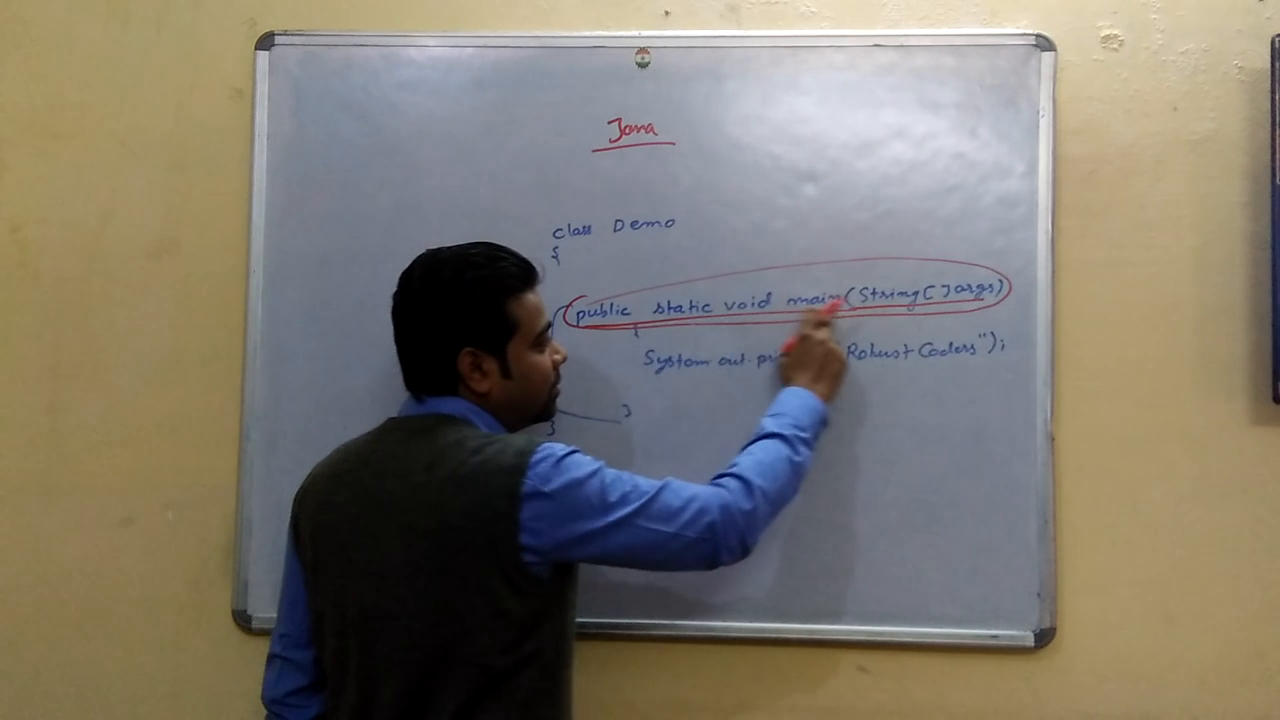 Java
class Demo
{
public static void main(String[]args)
{
System.out.pri Robust Coders");
}
}